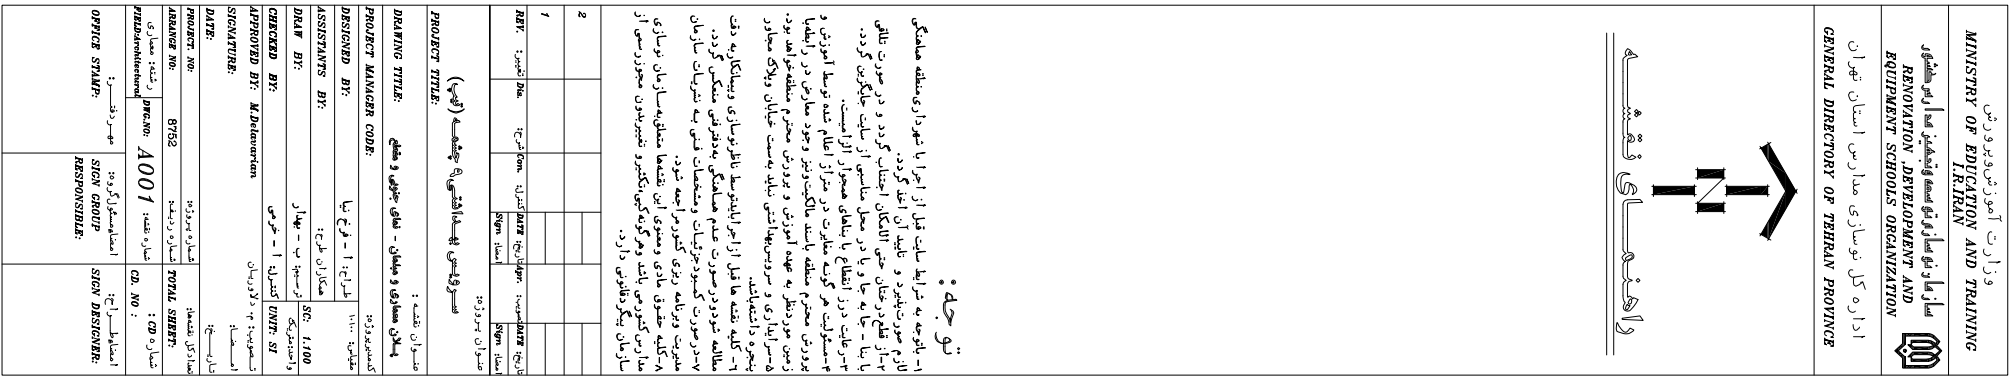 وزارت آموزش و پرورش
MINISTRY OF EDUCATION AND TRAINING
I.R.IRAN
سازمان نوسازی توسعه و تجهیز مدارس کشور
RENOVATION ,DEVELOPMENT AND
EQUIPMENT SCHOOLS ORGANIZATION
اداره کل نوسازی مدارس استان تهران
GENERAL DIRECTORY OF TEHRAN PROVINCE
راهنمای نقشه
توجه:
۱- باتوجه به شرایط سایت قبل از اجرا با شهرداری منطقه هماهنگی
لازم صورت پذیرد و تایید آن اخذ گردد.
۲-از قطع درختان حتی الامکان اجتناب گردد و در صورت تلاقی
با بنا - جا به جا و یا در محل مناسبی از سایت جایگزین گردد.
۳-رعایت درز انقطاع با بناهای همجوار الزامیست.
۴-مسئولیت هرگونه مغایرت در متراژ اعلام شده توسط آموزش و
پرورش محترم منطقه باسند مالکیت و نیز وجود معارض در رابطه با
زمین موردنظر به عهده آموزش و پرورش محترم منطقه خواهد بود.
۵-سرایداری و سرویس بهداشتی نباید به سمت خیابان و پلاک مجاور
پنجره داشته باشد.
۶- کلیه نقشه ها قبل از اجرا باید توسط ناظر نوسازی و پیمانکار به دقت
مطالعه شود و در صورت عدم هماهنگی به دفتر فنی منعکس گردد.
۷-در صورت کمبود جزئیات و مشخصات فنی به نشریات سازمان
مدیریت و برنامه ریزی کشور مراجعه شود.
۸-کلیه حقوق مادی و معنوی این نقشه ها متعلق به سازمان نوسازی
مدارس کشور می باشد و هرگونه کپی، تکثیر و تغییر بدون مجوز رسمی از
سازمان پیگرد قانونی دارد.
2
1
REV. تغییر: Dis. شرح: Con. کنترل: DATE تاریخ: Apr. تصویب: DATE تاریخ:
Sign امضا: Sign امضا:
PROJECT TITLE: عنوان پروژه:
سرویس بهداشتی ۹ چشمه (تیپ)
DRAWING TITLE: عنوان نقشه :
پلان معماری و مبلمان - نمای جنوبی و مقطع
PROJECT MANAGER CODE: کد مدیر پروژه:
DESIGNED BY: طراح: ا - فرخ نیا
مقیاس: ۱:۱۰۰
SC: 1.100
ASSISTANTS BY: همکاران طرح:
DRAW BY: ترسیم: ب - بهدار
واحد: متریک
UNIT: SI
CHECKED BY: کنترل: ا - خرمی
APPROVED BY: M.Delavarian تصویب: م. دلاوریان
SIGNATURE: امضا:
DATE: تاریخ:
PROJECT. NO: شماره پروژه: تعداد کل نقشه ها:
ARRANGE NO: 8752 شماره ردیف: TOTAL SHEET:
رشته: معماری
FIELD:Architectural
DWG.NO: A001 شماره نقشه:
شماره CD :
CD. NO :
مهر دفتر: امضا مسئول گروه: امضا طراح:
OFFICE STAMP: SIGN GROUP RESPONSIBLE: SIGN DESIGNER: